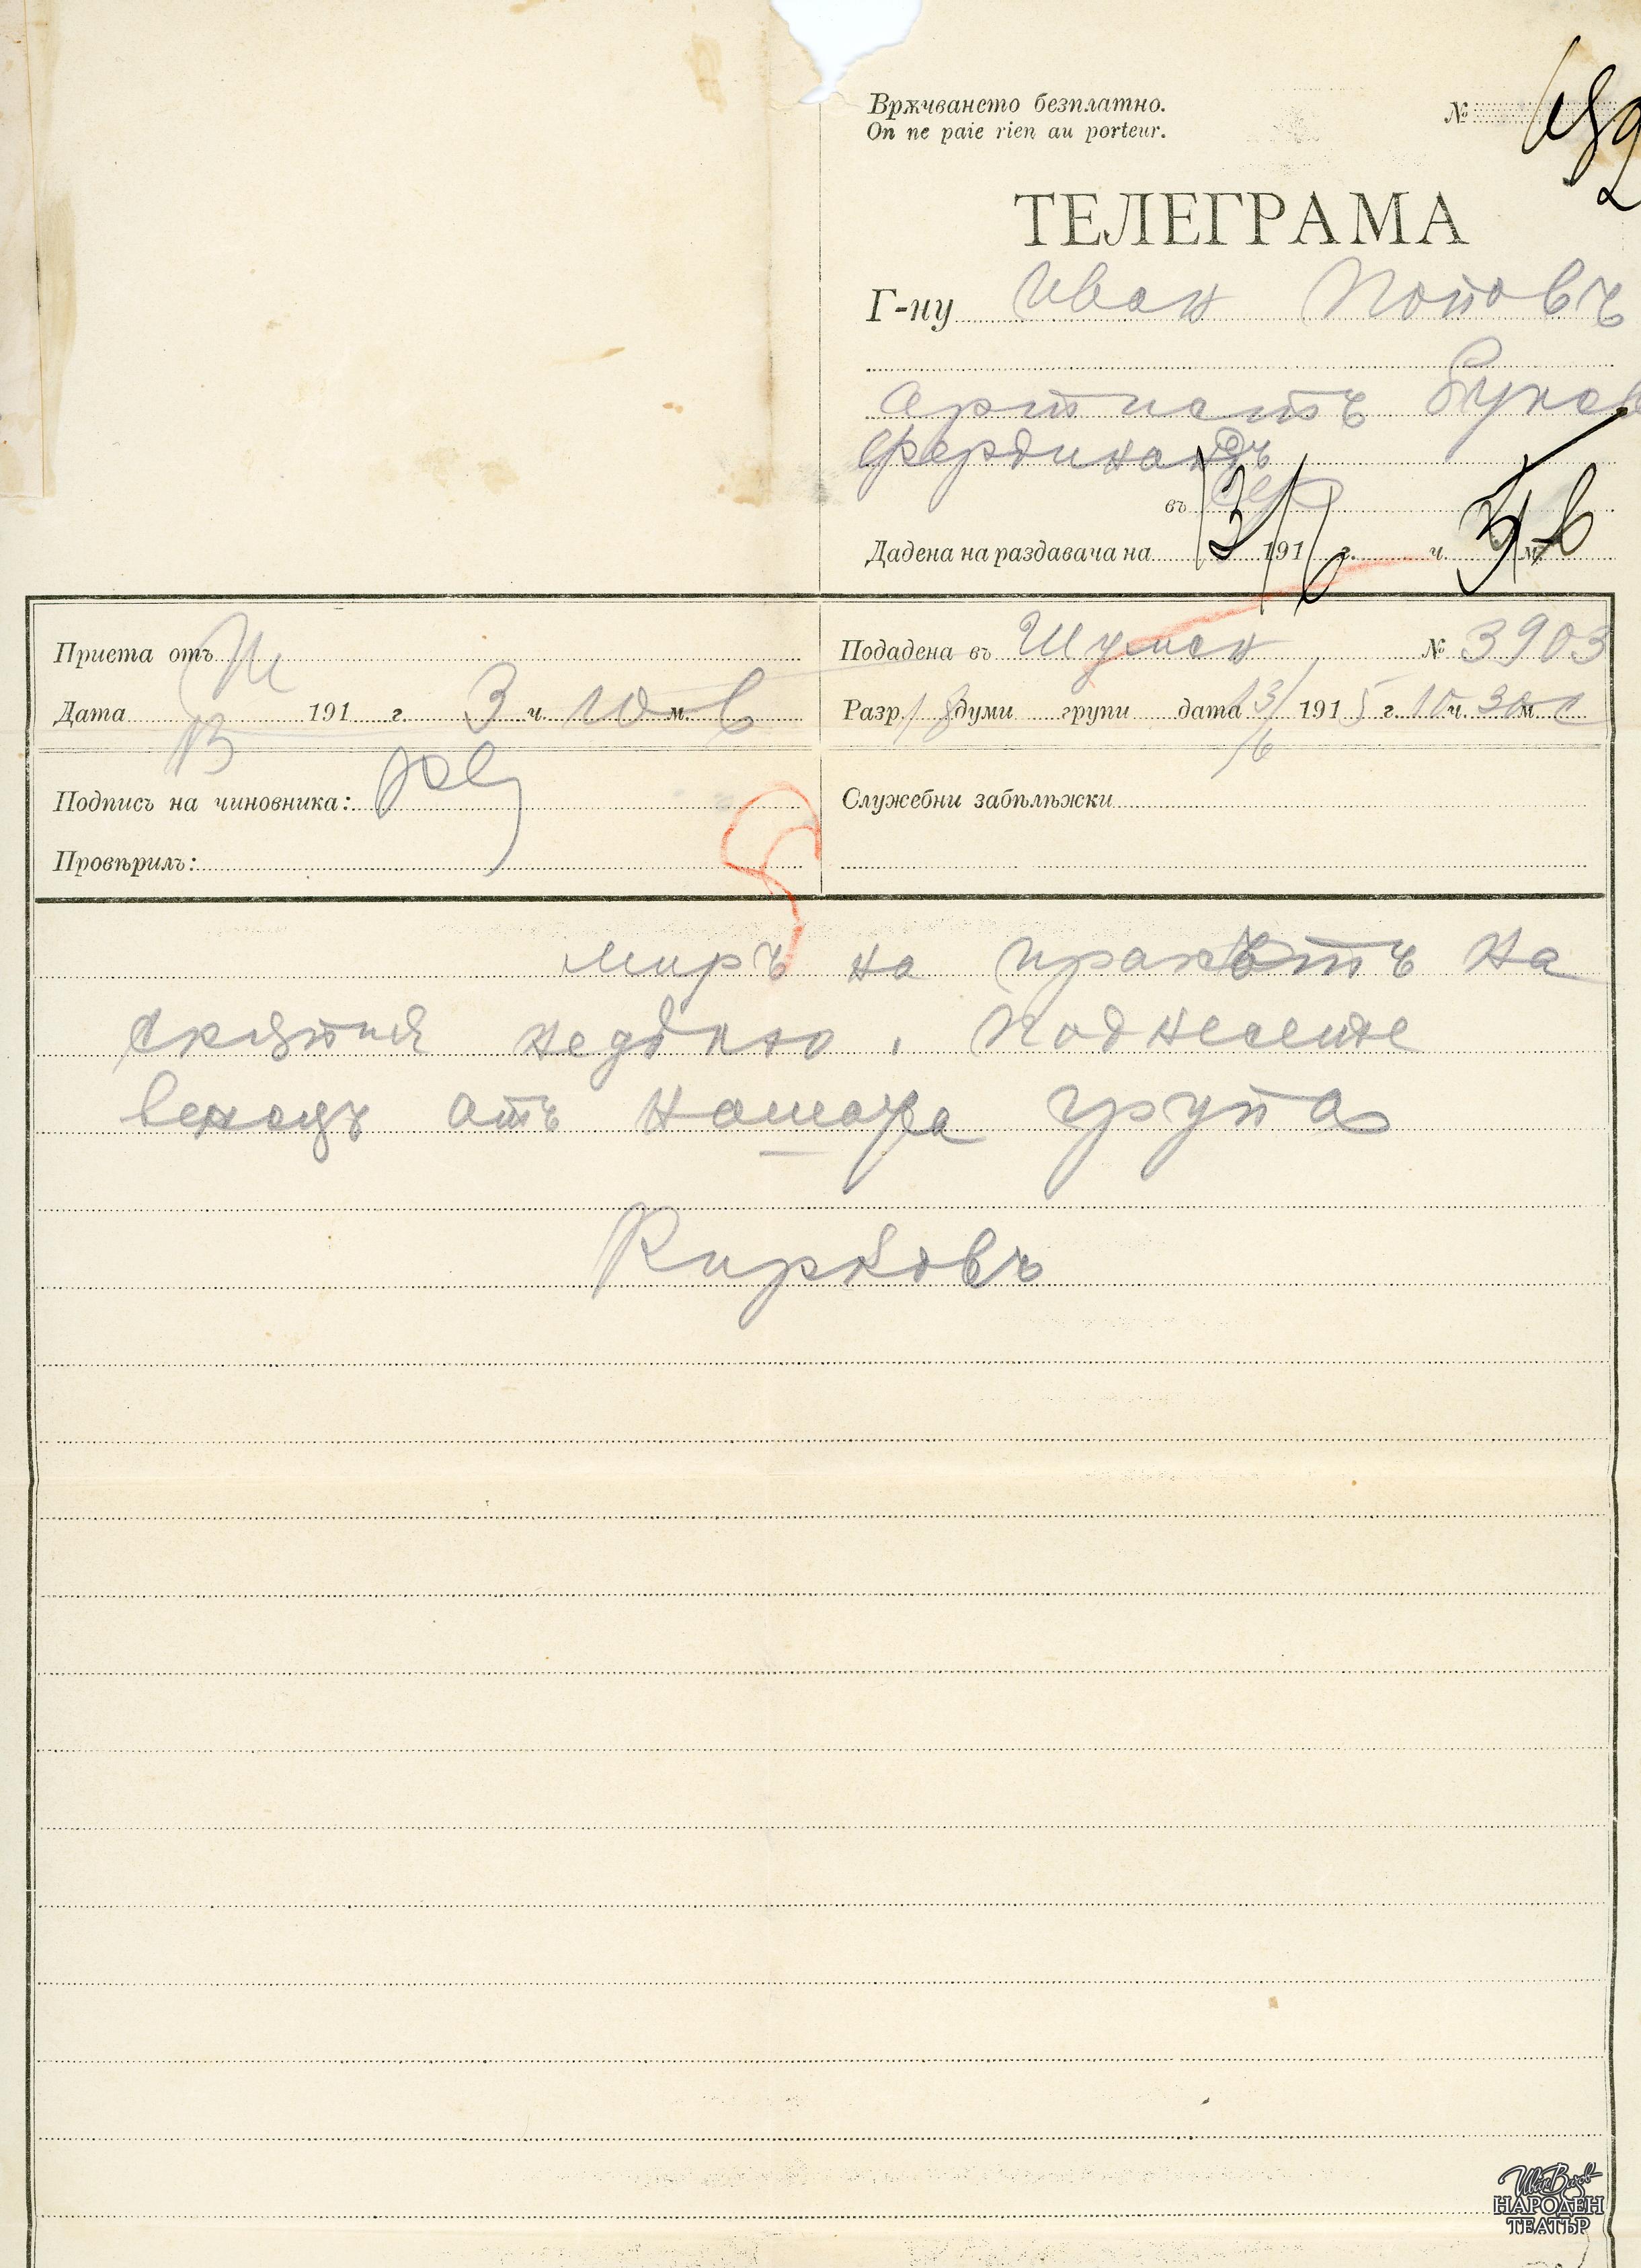 Врѫчването безплатно.
On ne paie rien au porteur.
№
ТЕЛЕГРАМА
Г-ну Иван Поповъ
артистъ
Фердинандъ
въ
Дадена на раздавача на 13/6 191 г. ч. 3 м.
Приета отъ Ш
Дата 13 191 г. 3 ч. 10 м. в
Подпись на чиновника:
Провѣрилъ:
Подадена въ Шумен № 3903
Разр. 18 думи групи дата 13/6 1915 г. 10 ч. 30 м.
Служебни забѣлѣжки
миръ на прахътъ на
скѫпия недѣлю. Поднесете
венецъ отъ нашата група
Кирковъ
Иван Вазов
НАРОДЕН
ТЕАТЪР